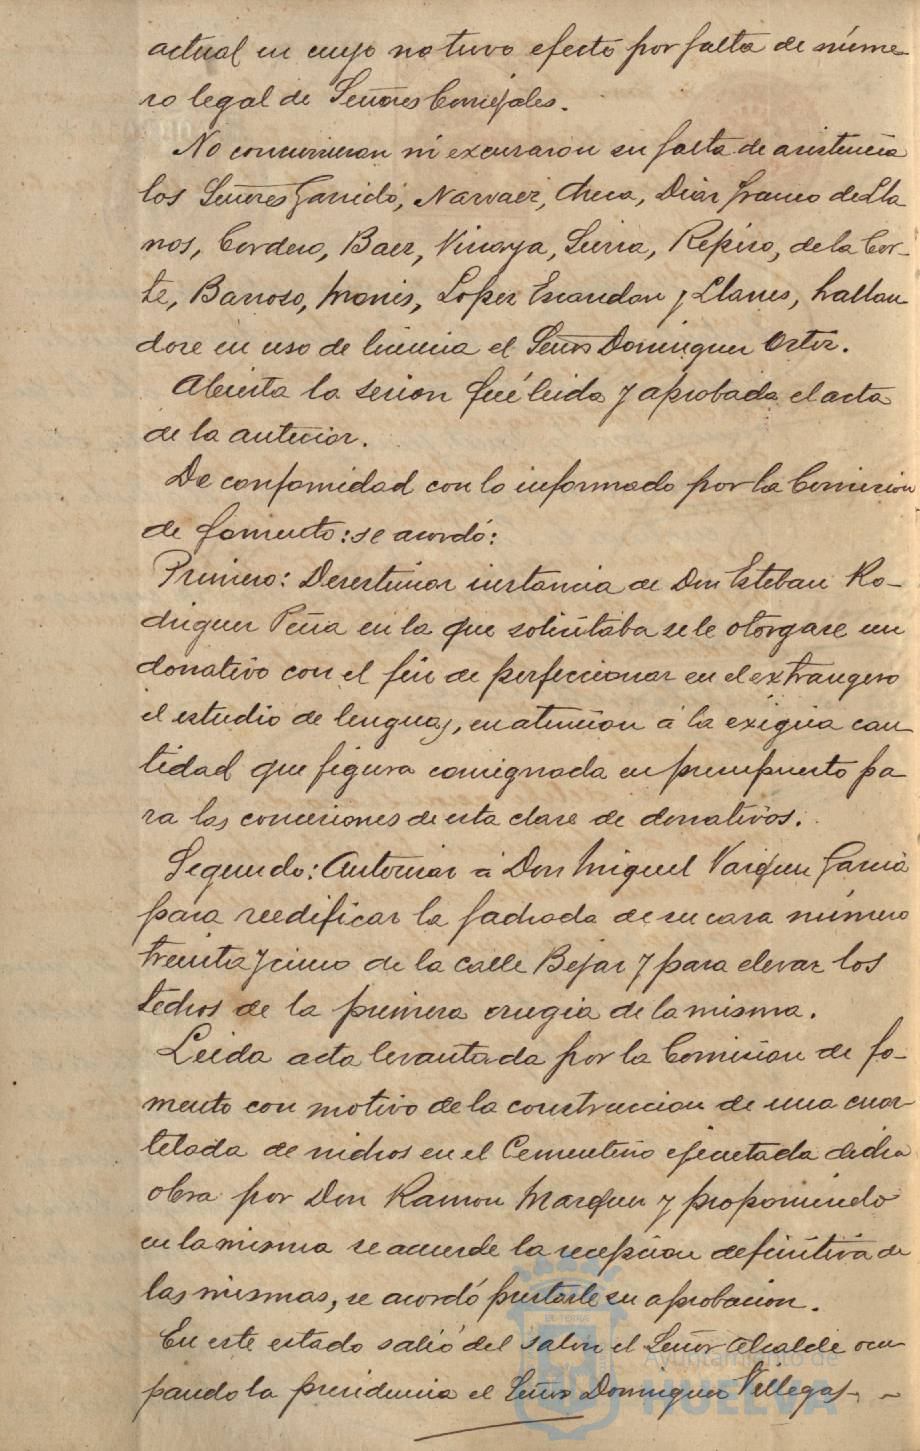 actual en cuyo no tuvo efecto por falta de núme-
ro legal de Señores Concejales.
No concurrieron ni excusaron su falta de asistencia
los Señores Garrido, Narvaez, Checa, Diaz Franco de Lla
nos, Cordero, Baez, Vizcaya, Sierra, Repiso, de la Cor-
te, Barroso, Monis, Lopez Escandon y Llanes, hallan
dose en uso de licencia el Señor Dominguez Ortiz.
Abierta la sesion fué leida y aprobada el acta
de la anterior.
De conformidad con lo informado por la Comision
de fomento: se acordó:
Primero: Desestimar instancia de Don Esteban Ro-
driguez Peña en la que solicitaba se le otorgase un
donativo con el fin de perfeccionar en el extrangero
el estudio de lenguas, en atencion á la exigüa can
tidad que figura consignada en presupuesto pa
ra las concesiones de esta clase de donativos.
Segundo: Autorizar á Don Miguel Vazquez Garcia
para reedificar la fachada de su casa número
treinta y cinco de la calle Bejar y para elevar los
techos de la primera crugia de la misma.
Leida acta levantada por la Comision de fo-
mento con motivo de la construccion de una cuar-
telada de nichos en el Cementerio ejecutada dicha
obra por Don Ramon Marquez y proponiendo
en la misma se acuerde la recepcion definitiva de
las mismas, se acordó prestarle su aprobacion.
En este estado salió del salon el Señor Alcalde ocu
pando la presidencia el Señor Dominguez Villegas
Ayuntamiento de
HUELVA